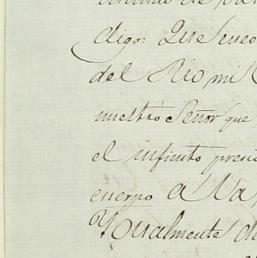 digo: Que
del Rio mi
nuestro Señor que
el infinito preci
cuerpo á Va
Ygualmente de